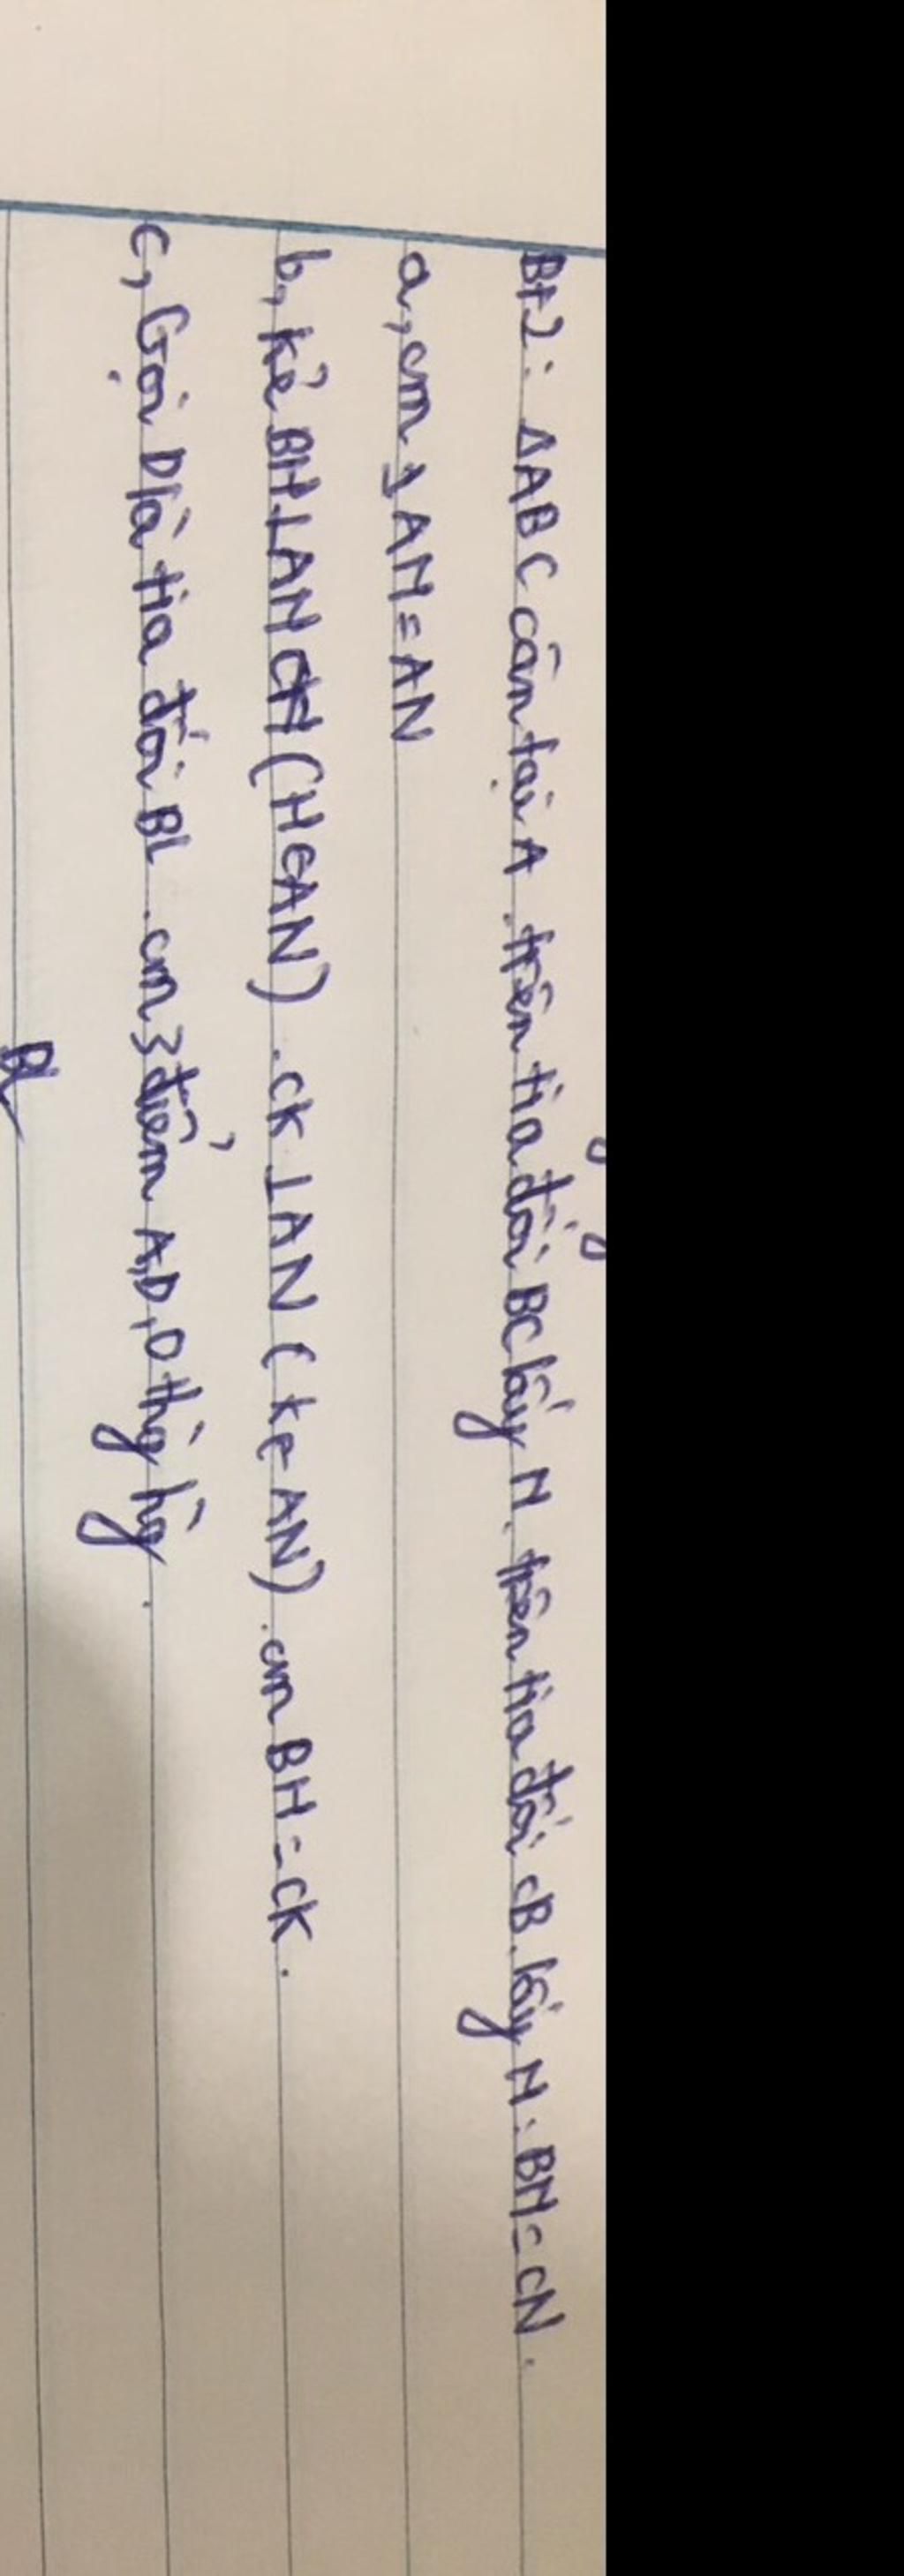 BT2: ΔABC cân tại A. trên tia đối BC lấy M. trên tia đối CB. lấy N: BM = CN.
a, cm AM = AN
b, kẻ BH⊥AM (H∈AM). CK⊥AN (K∈AN). cm BH = CK.
c, Gọi D là tia đối BC. cm 3 điểm A, D, O thẳng hàng.